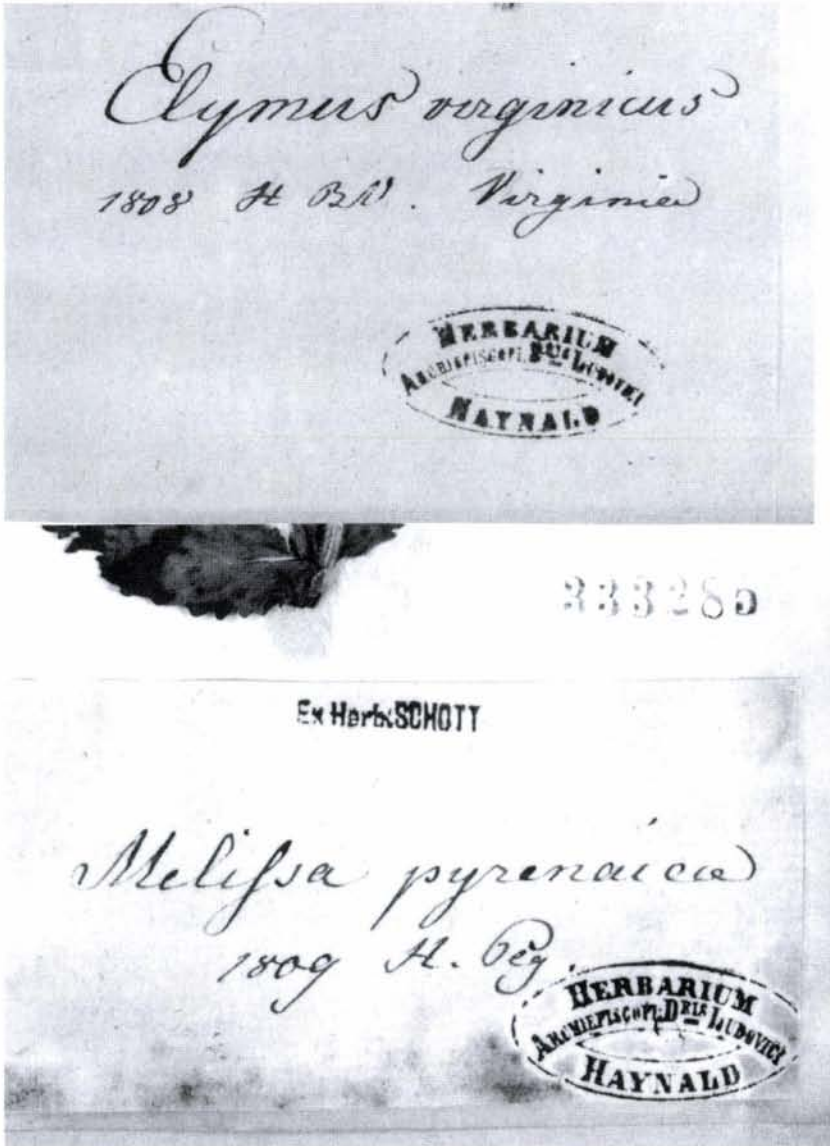 Elymus virginicus
1808 H Virginia
HERBARIUM
ARCHIEPISCOPI LUDOVICI
HAYNALD
333285
Ex Herb. SCHOTT
Melifsa pyrenaica
1809 H. Peg.
HERBARIUM
ARCHIEPISCOPI. DRIS LUDOVICI
HAYNALD